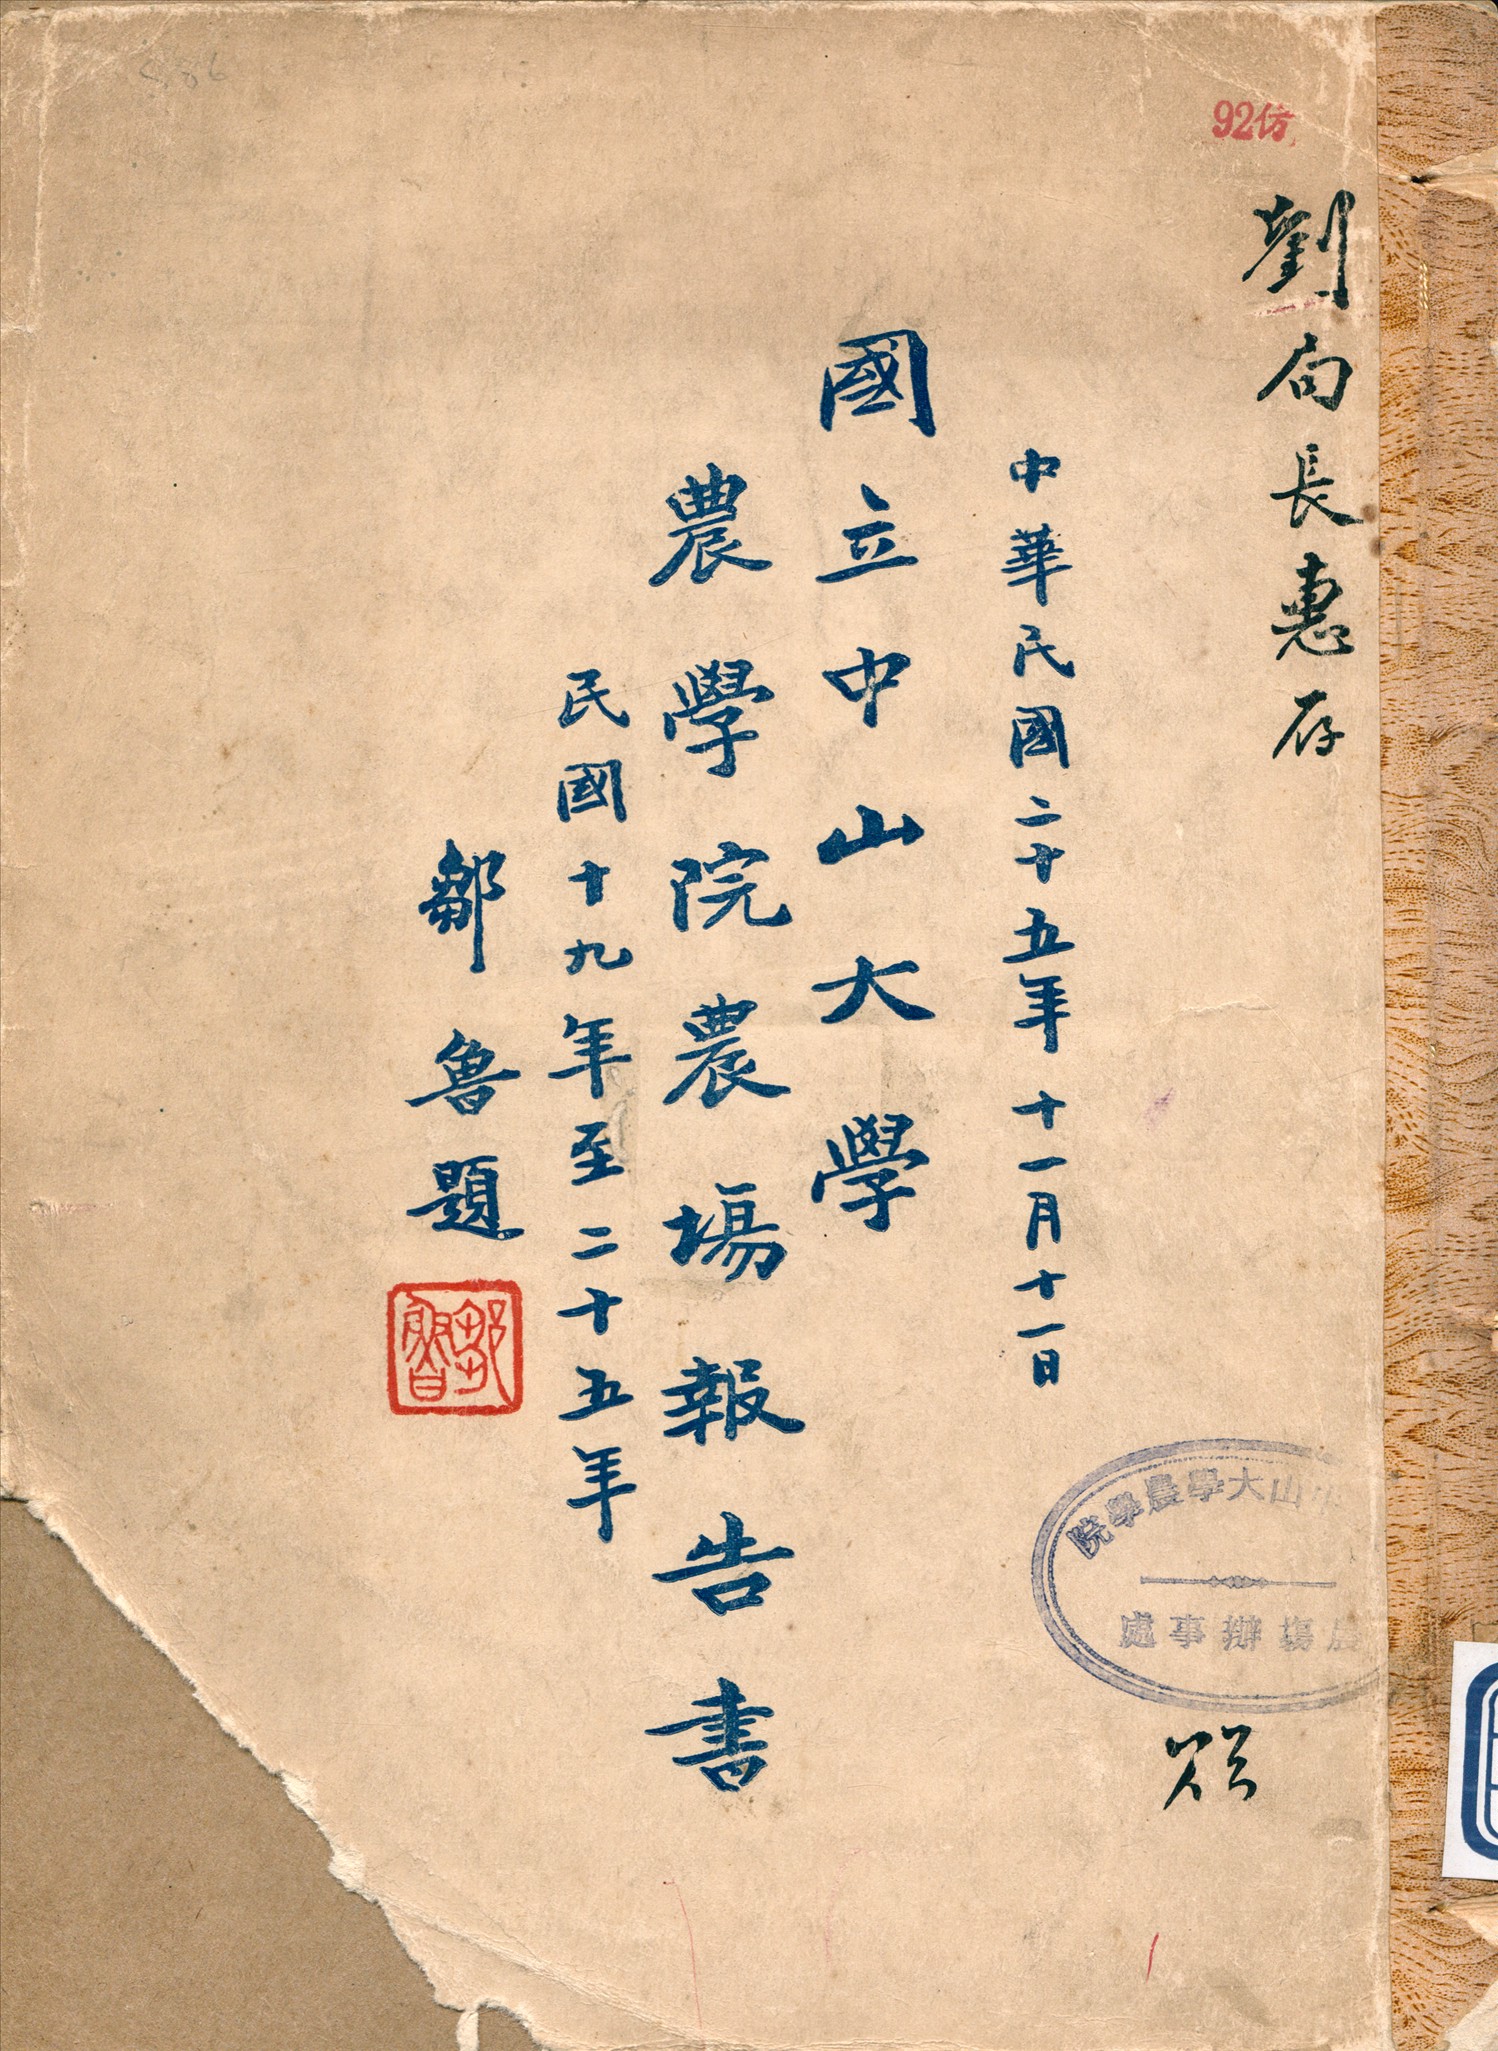 92仿
劉局長惠存
中華民國二十五年十一月十一日
國立中山大學
農學院農場報告書
民國十九年至二十五年
鄒魯題
鄒魯
中山大學農學院
農場辦事處